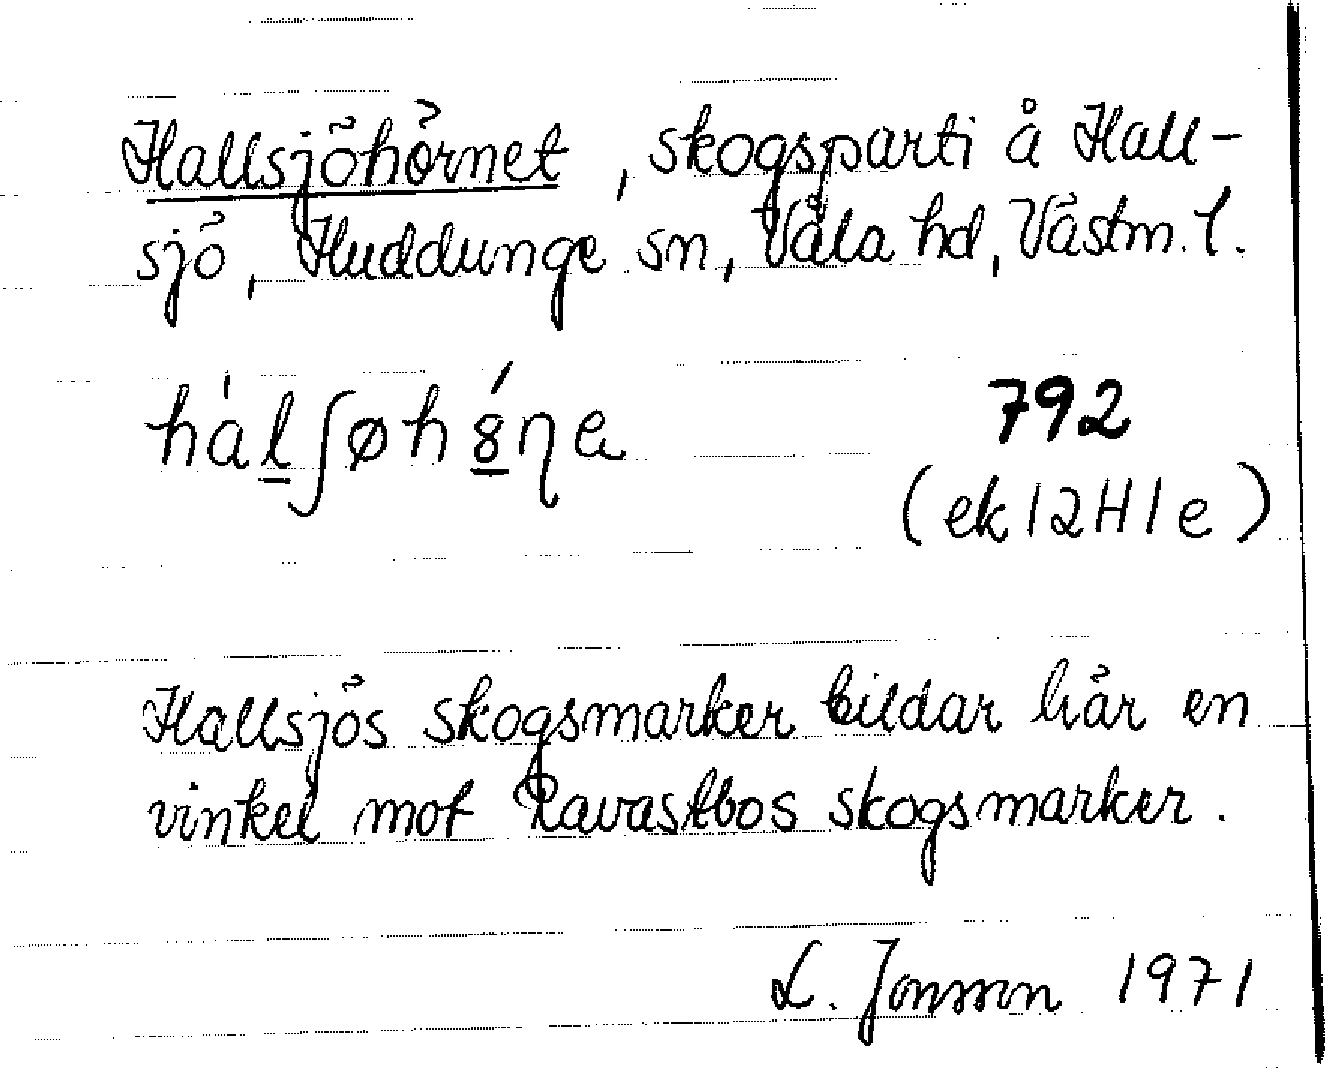 Hallsjöhörnet, skogsparti å Hall-
sjö, Huddunge sn, Våla hd, Västm. l.
hàlʃøh8́ηa
792
(ek 12H1e)
Hallsjös skogsmarker bildar här en
vinkel mot Ravastbos skogsmarker.
L. Jonsson 1971